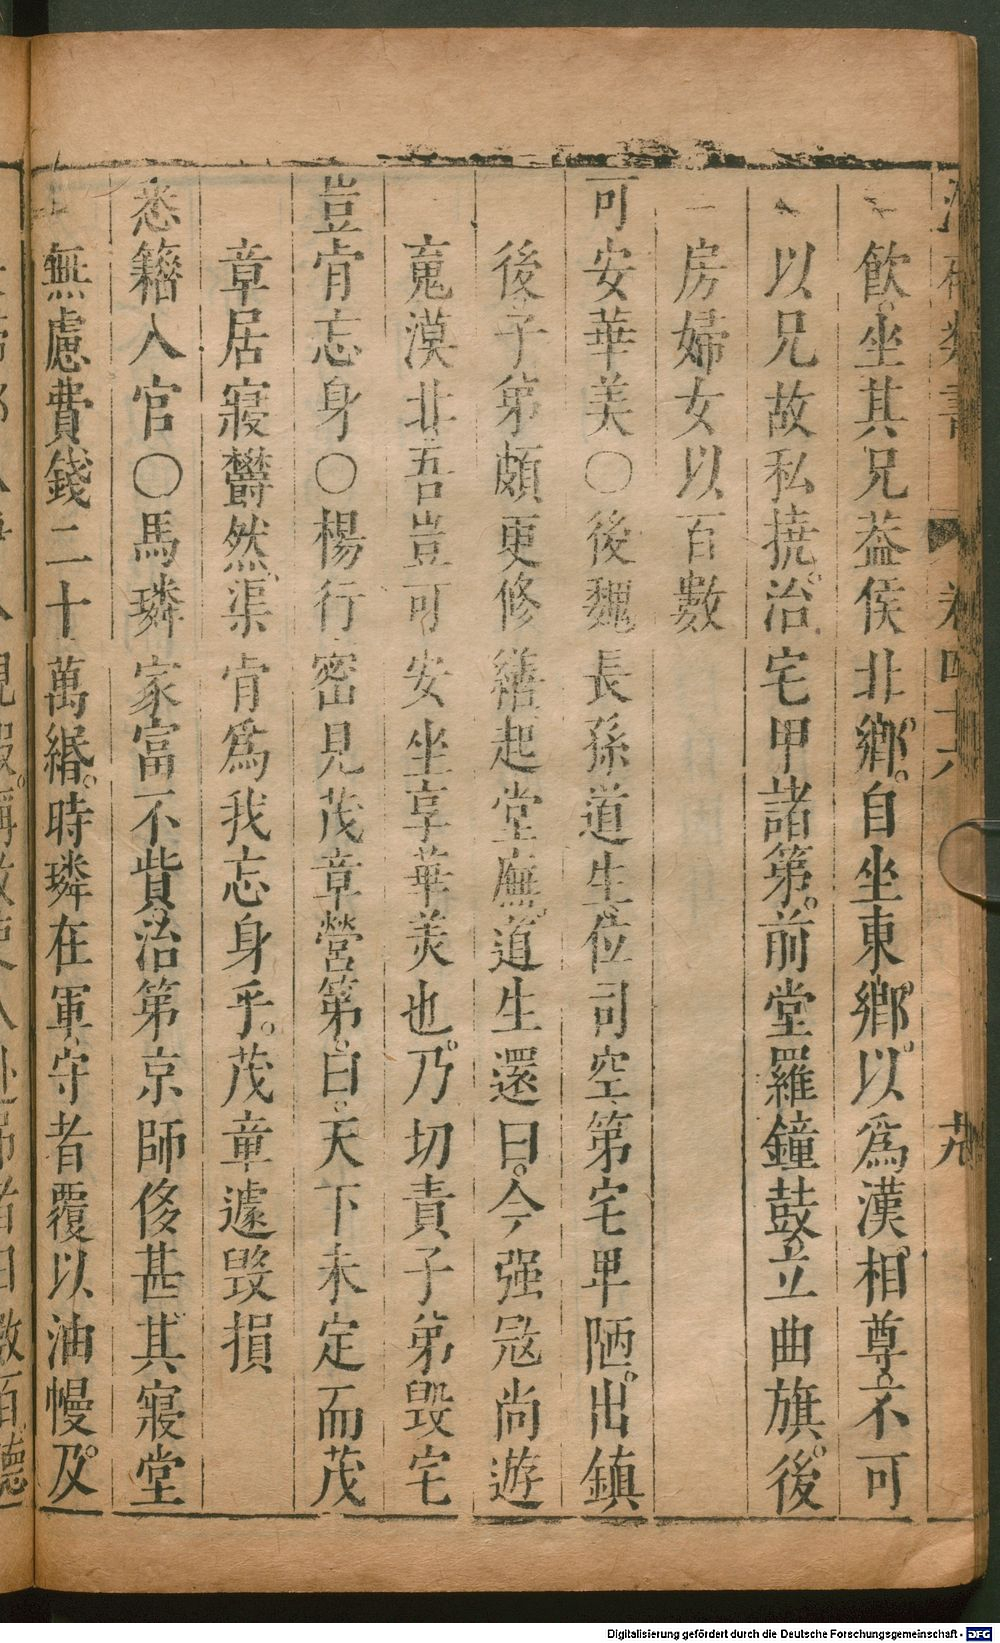 卷四十六
飲坐其兄蓋侯北鄉自坐東鄉以爲漢相尊不可
以兄故私撓治宅甲諸第前堂羅鐘鼓立曲旃後
房婦女以百數
可安華美○後魏長孫道生位司空第宅卑陋出鎮
後子弟頗更修繕起堂廡道生還曰今强寇尚遊
䰟漠北吾豈可安坐享華美也乃切責子弟毁宅
豈肯忘身○楊行密見茂章營第曰天下未定而茂
章居寢欝然渠肯爲我忘身乎茂章遽毁損
悉籍入官○馬璘家富不貲治第京師侈甚其寢堂
無慮費錢二十萬緡時璘在軍守者覆以油幔及
Digitalisierung gefördert durch die Deutsche Forschungsgemeinschaft - DFG